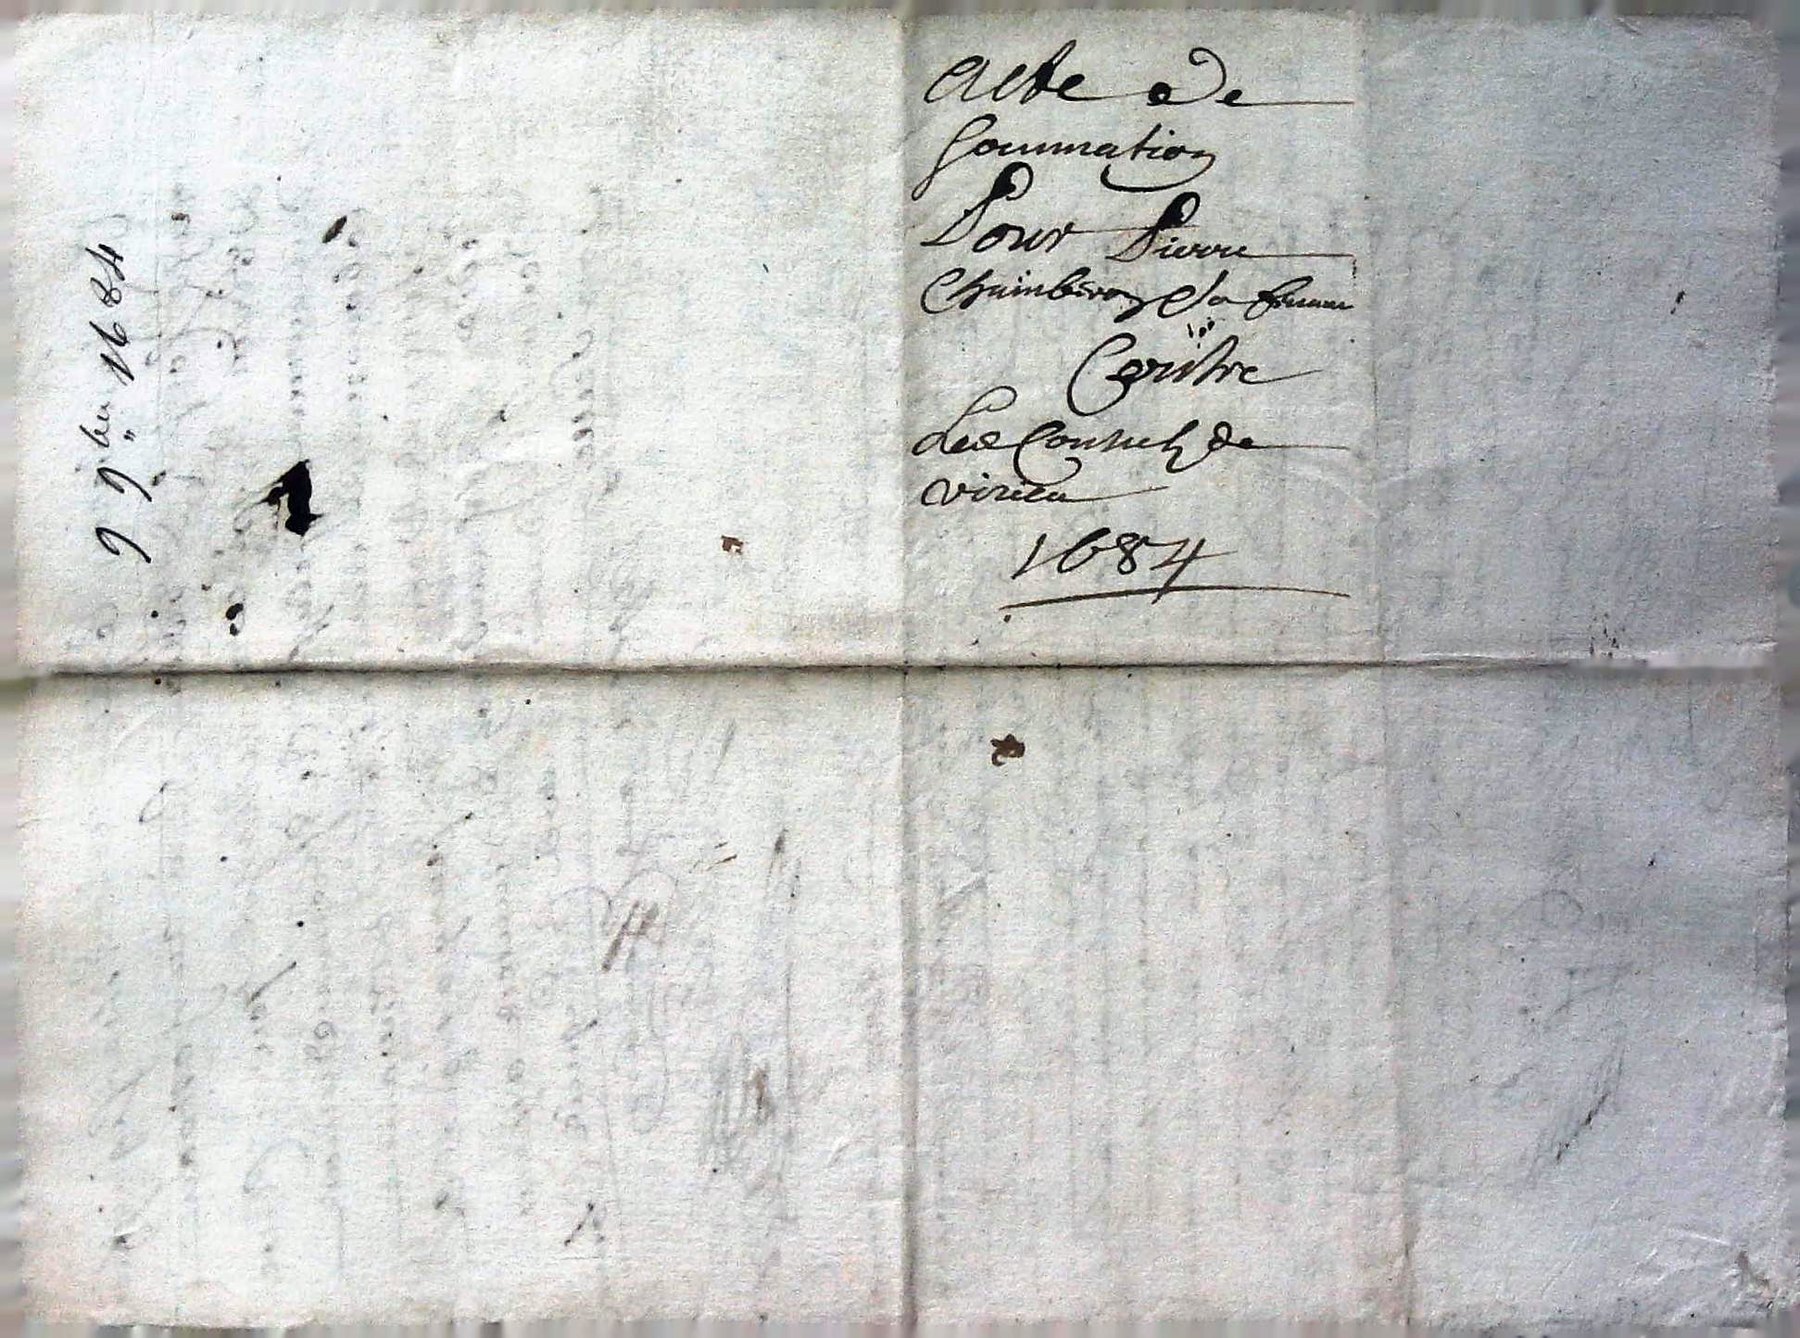 Acte de
sommation
Pour Pierre
Chamberon et sa femme
Contre
Les Consuls de
virieu
1684
9 9bre 1684